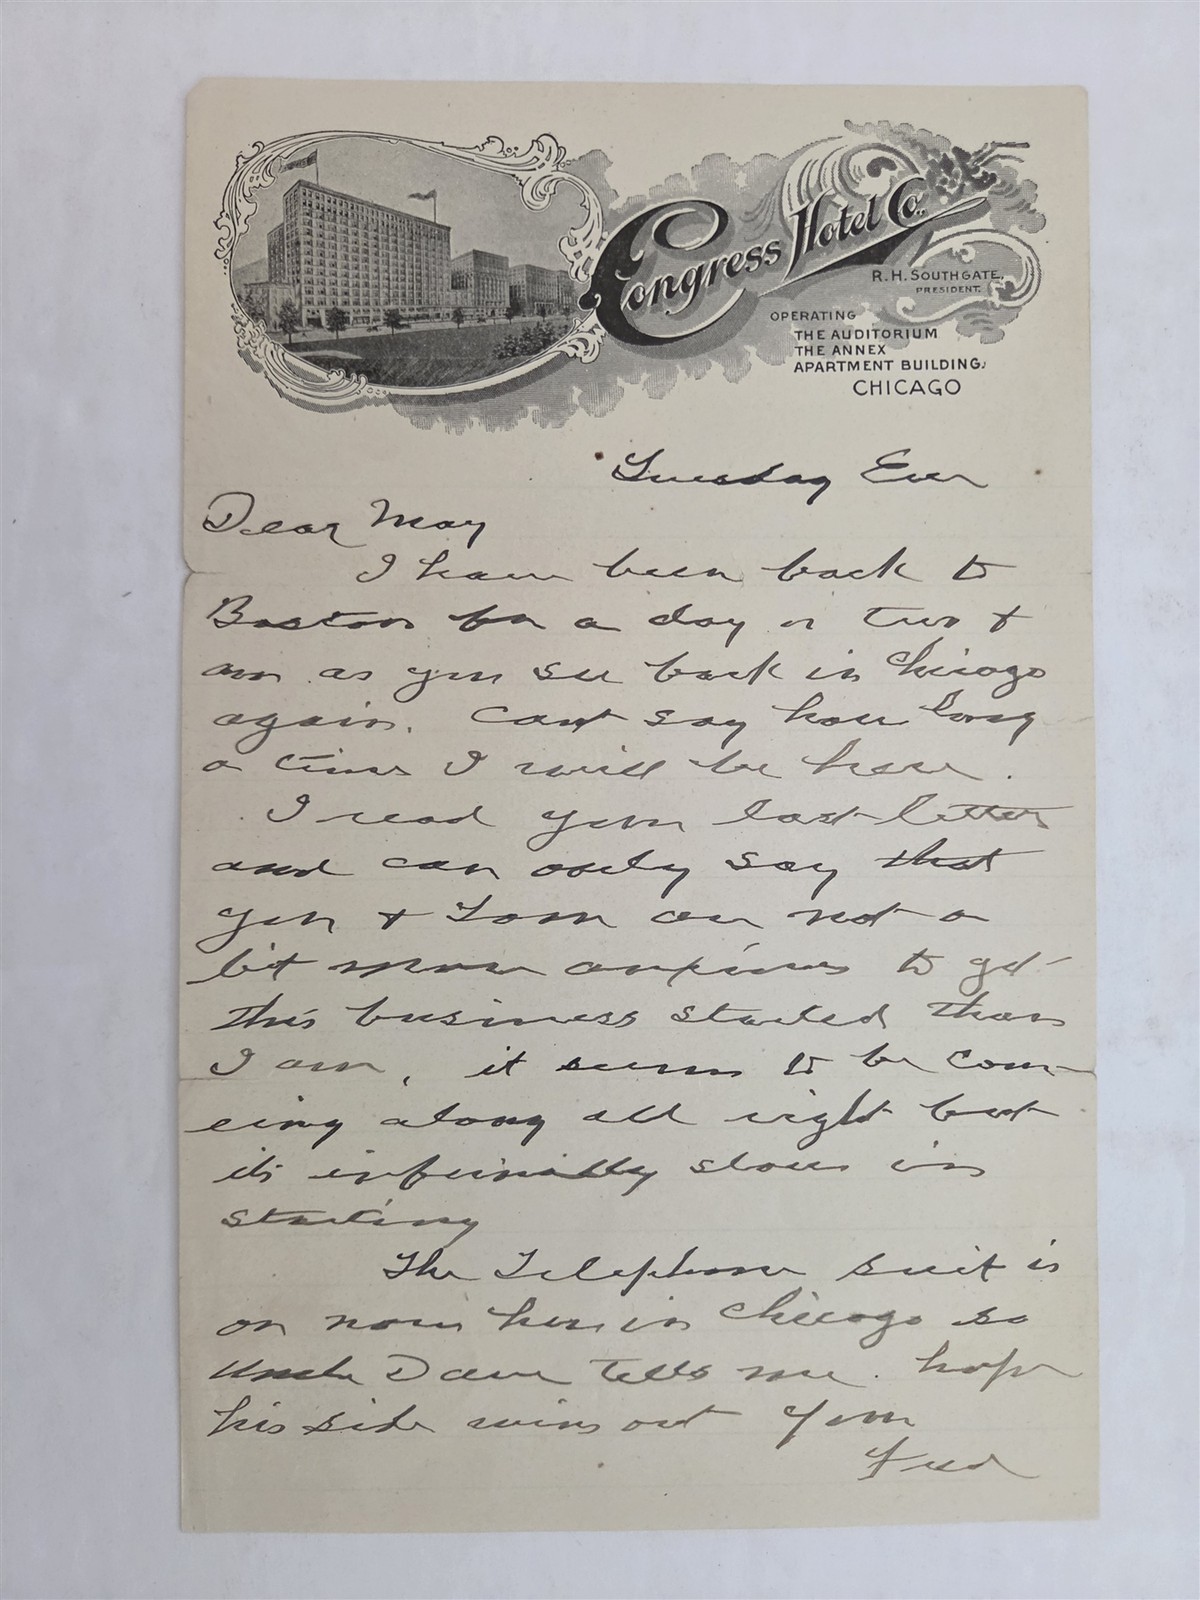 Congress Hotel Co.
R. H. SOUTHGATE,
PRESIDENT.
OPERATING
THE AUDITORIUM
THE ANNEX
APARTMENT BUILDING,
CHICAGO
Tuesday Eve
Dear May
I have been back to
Boston for a day or two &
am as you see back in Chicago
again. Cant say how long
a time I will be here.
I read your last letter
and can only say that
you & Tom are not a
bit more anxious to get
this business started than
I am, it seems to be com-
eing along all right but
its infernally slow in
starting
The Telephone suit is
on now here in Chicago so
Uncle Dave tells me. hope
his side wins out Your
Fred